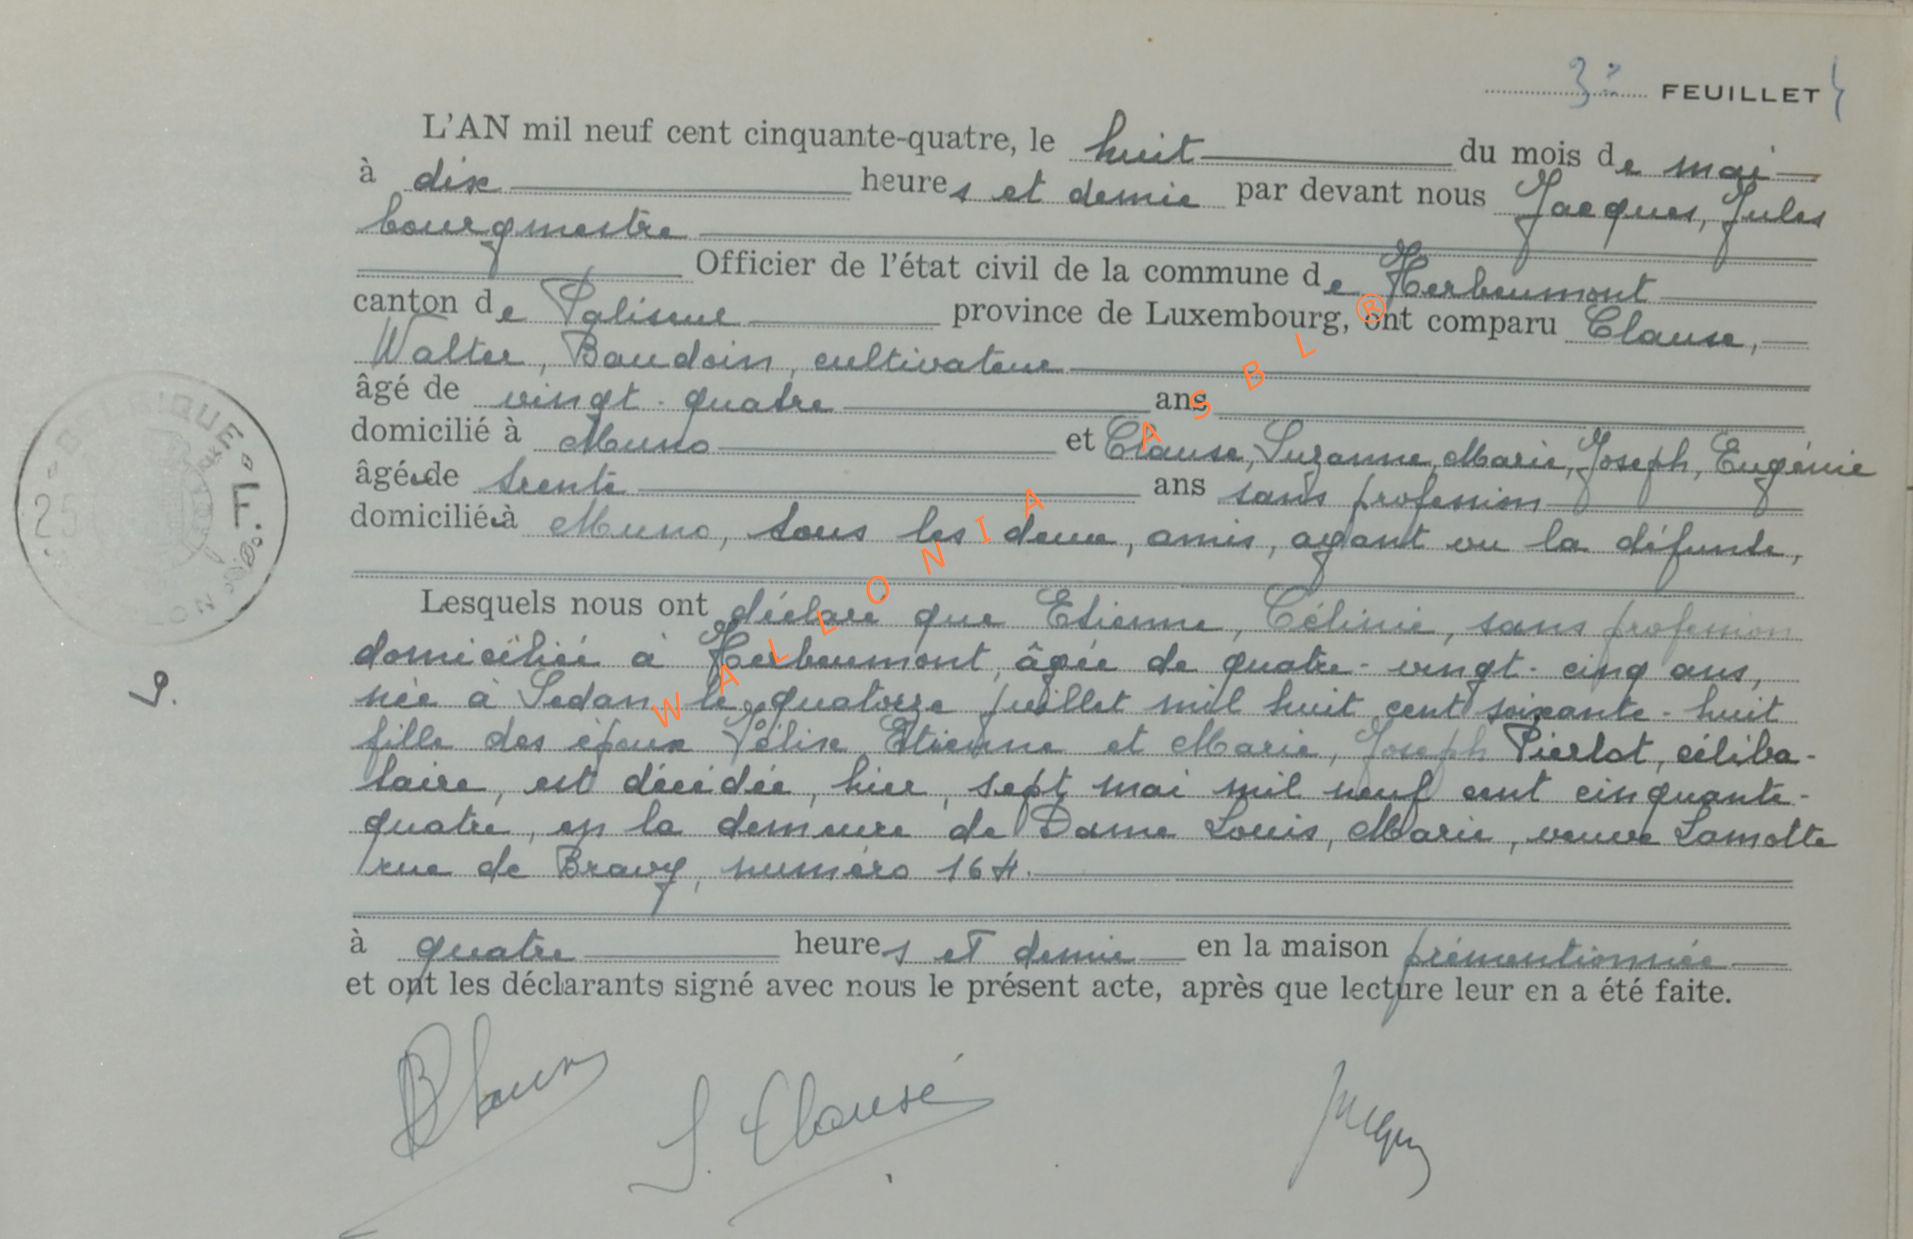 3e FEUILLET
L'AN mil neuf cent cinquante-quatre, le huit du mois de mai
à dix heures et demie par devant nous Jacques, Jules
bourgmestre
Officier de l'état civil de la commune de Herbeumont
canton de Paliseul province de Luxembourg, ont comparu Clause,
Walter, Baudoin, cultivateur
âgé de vingt-quatre ans
domicilié à Muno et Clause, Suzanne, Marie, Joseph, Eugénie
âgée de trente ans sans profession
domiciliée à Muno, tous les deux, amis, ayant vu la défunte,
Lesquels nous ont déclaré que Etienne, Célinie, sans profession
domiciliée à Herbeumont, âgée de quatre-vingt-cinq ans,
née à Sedan, le quatorze juillet mil huit cent soixante-huit
fille des époux Félix Etienne et Marie, Joseph Pierlot, céliba-
taire, est décédée, hier, sept mai mil neuf cent cinquante-
quatre, en la demeure de Dame Louis, Marie, veuve Lamotte
rue de Bravy, numéro 164.
à quatre heures et demie en la maison prémentionnée
et ont les déclarants signé avec nous le présent acte, après que lecture leur en a été faite.
S. Clause
Jacques
BELGIQUE
25 F
WALLONIA ASBL ®